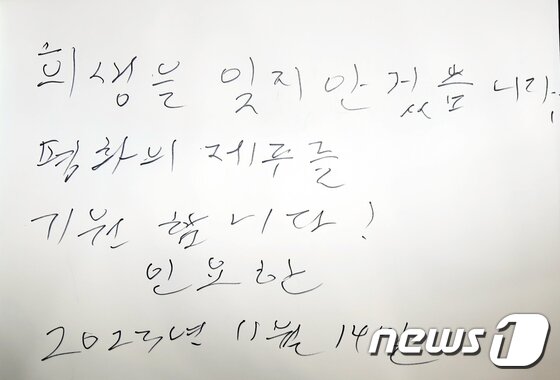 희생을 잊지안겠씀니다.
평화의 제주를
기원 합니다!
인요한
2023년 11월 14일
news1